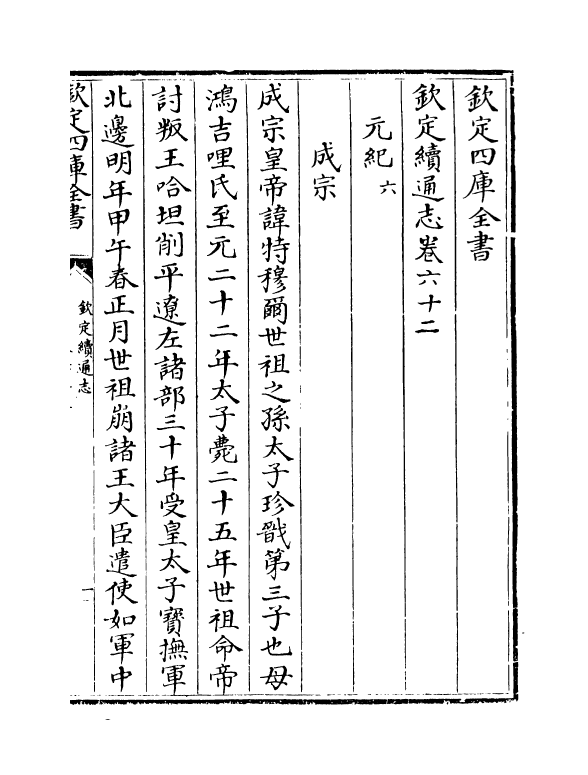 欽定四庫全書
欽定續通志卷六十二
元紀六
成宗
成宗皇帝諱特穆爾世祖之孫太子珍戩第三子也母
鴻吉哩氏至元二十二年太子薨二十五年世祖命帝
討叛王哈坦削平遼左諸部三十年受皇太子寶撫軍
北邊明年甲午春正月世祖崩諸王大臣遣使如軍中
欽定四庫全書
欽定續通志
一